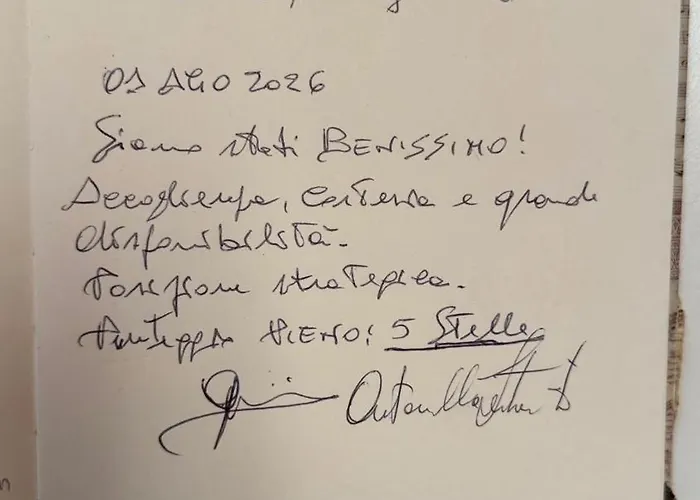 01 AGO 2026
Siamo stati BENISSIMO!
Accoglienza, cortesia e grande
disponibilità.
Posizione strategica.
Punteggio PIENO! 5 Stelle